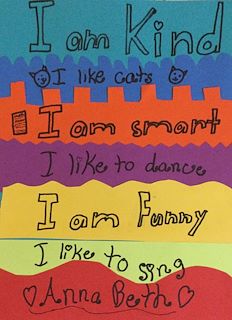 I am Kind
I like cats
I am smart
I like to dance
I am Funny
I like to sing
Anna Beth